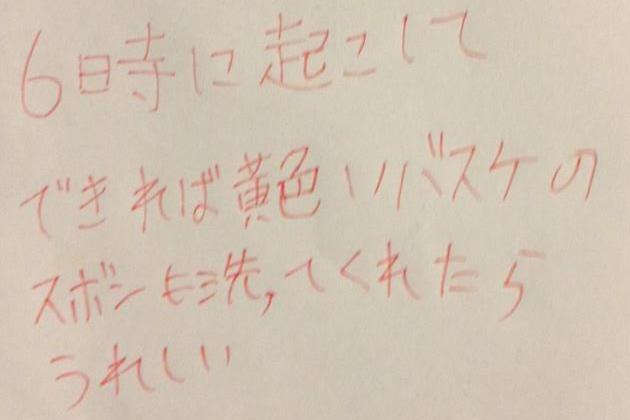 6時に起こして
できれば黄色いバスケの
スボンも洗ってくれたら
うれしい